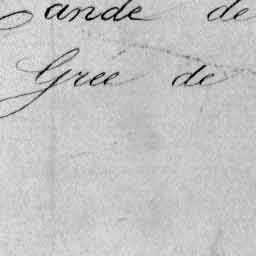 ande de
Gree de